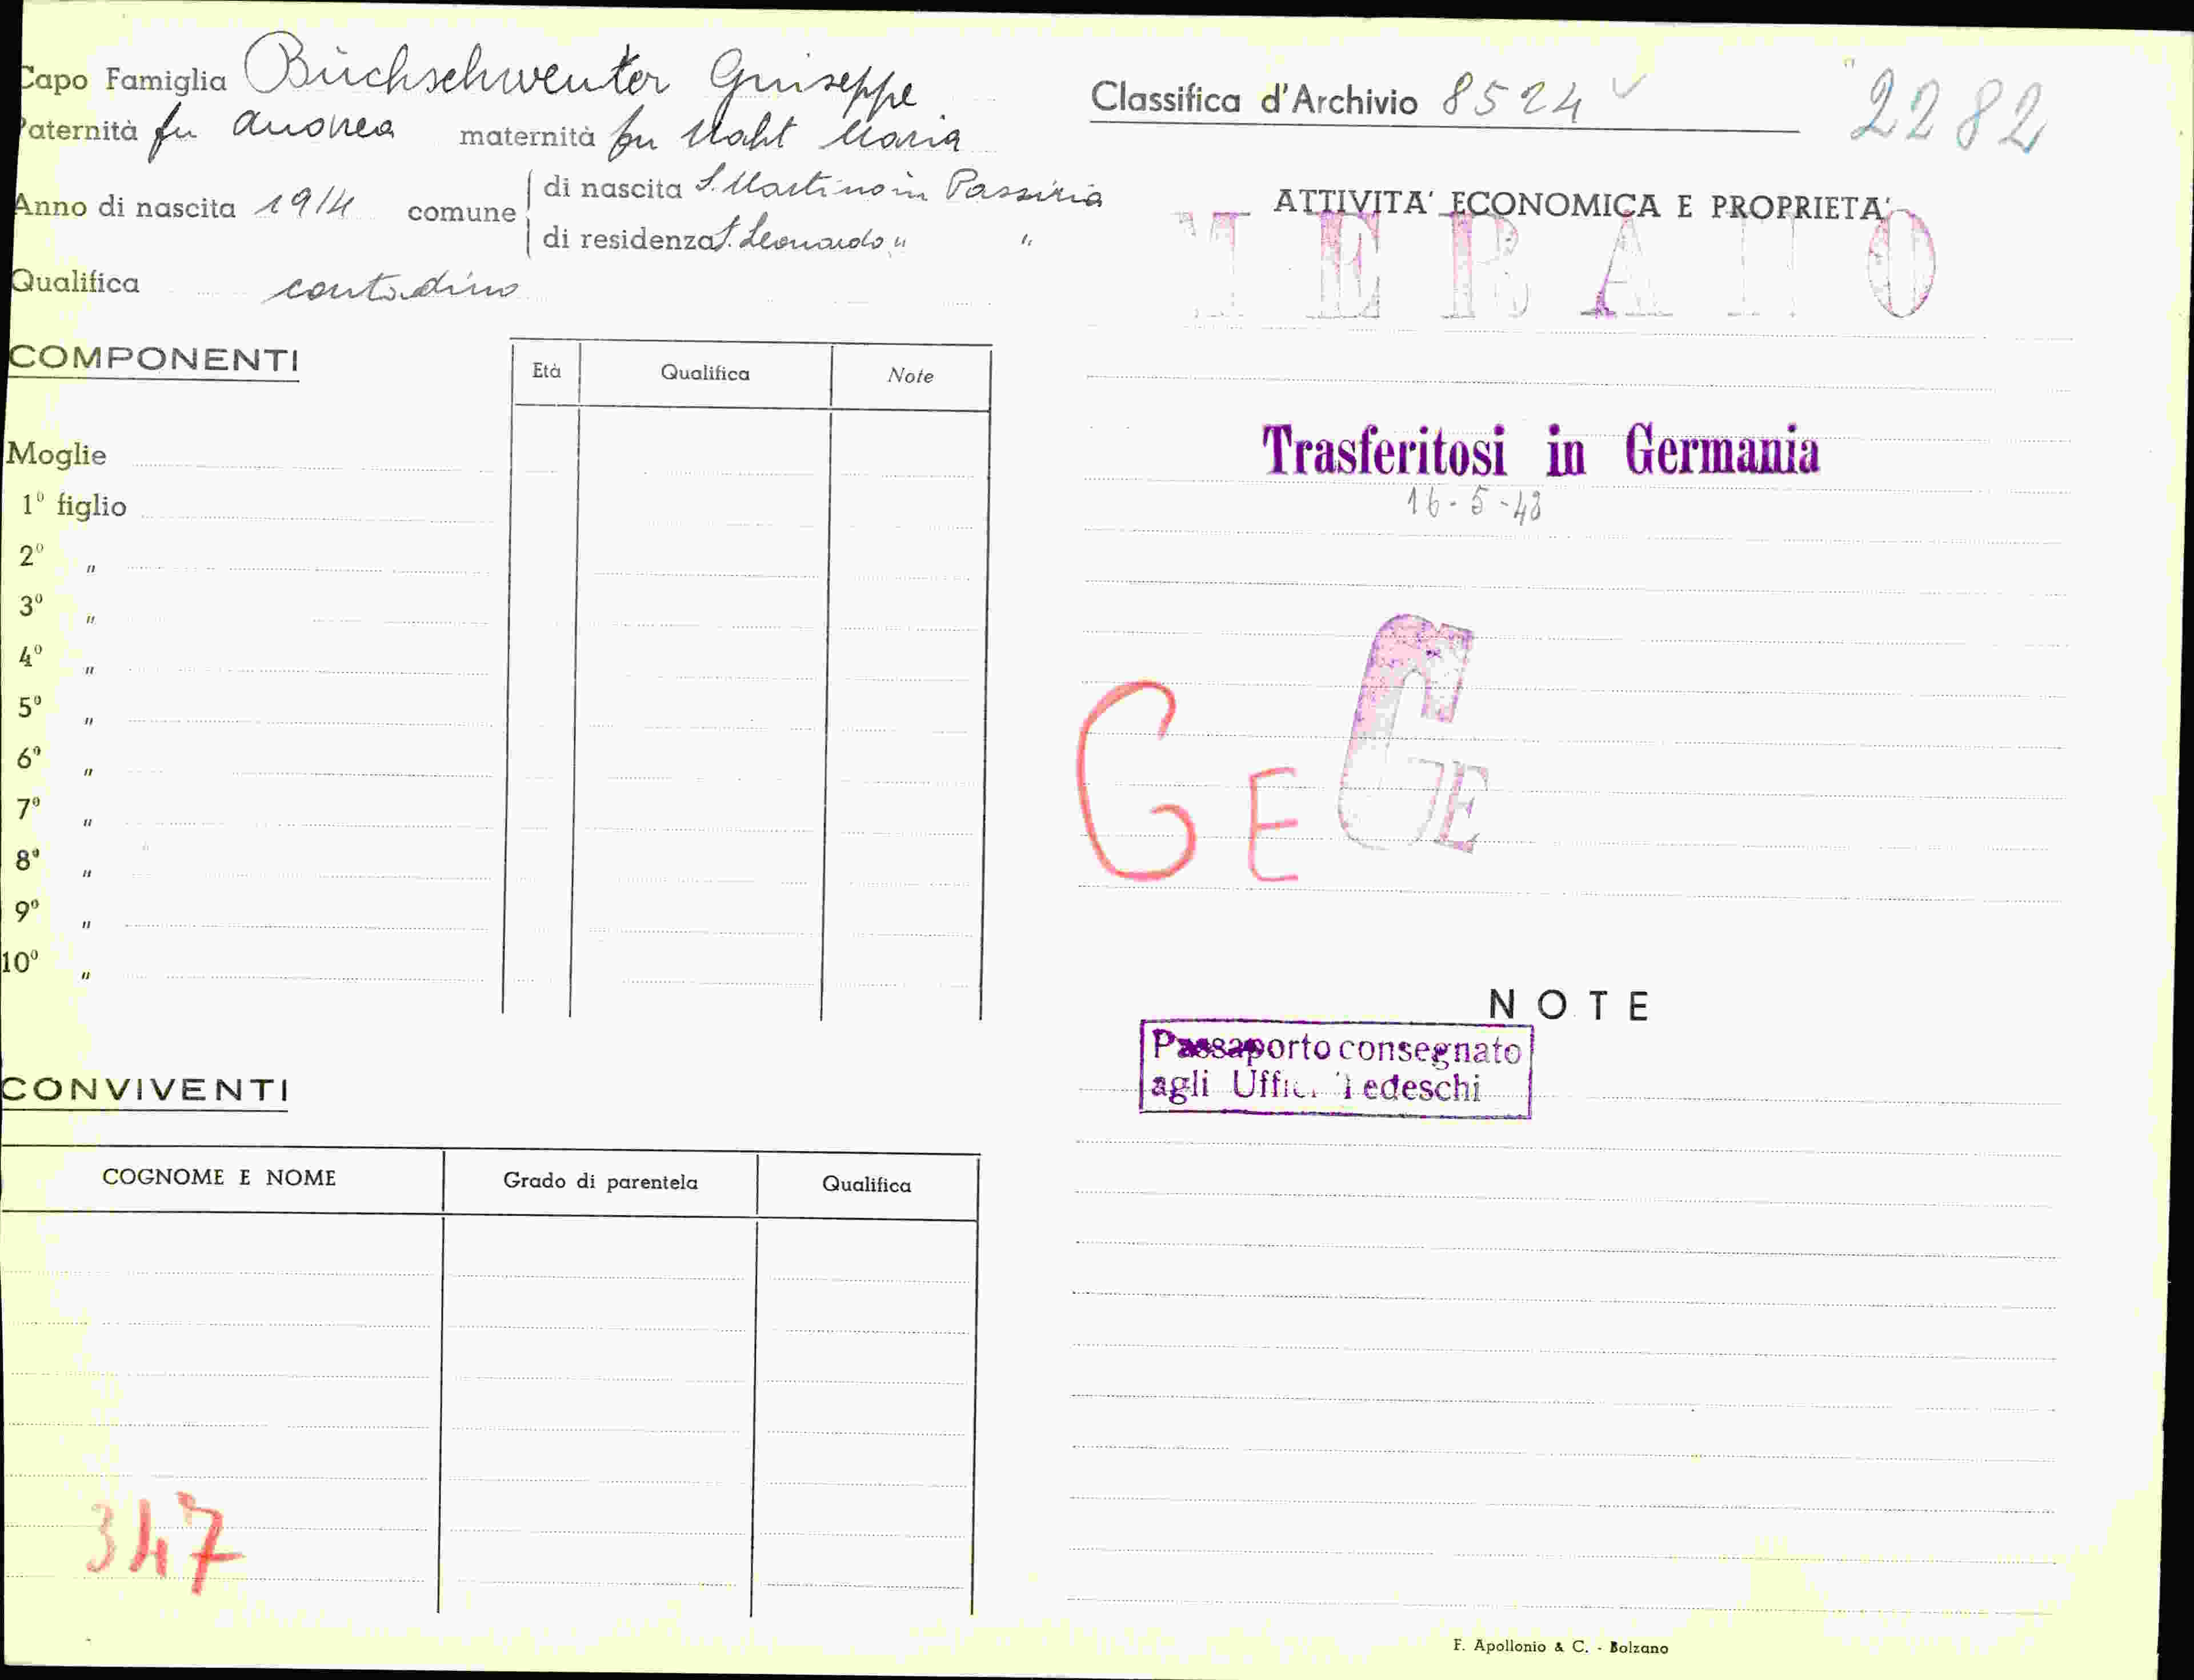 Capo Famiglia Büchschwenter Giuseppe
Paternità fu Andrea maternità fu Maria
Anno di nascita 1914 comune di nascita S. Martino in Passiria
di residenza S. Leonardo " "
Qualifica contadino
COMPONENTI
Età Qualifica Note
Moglie
1º figlio
2º "
3º "
4º "
5º "
6º "
7º "
8º "
9º "
10º "
CONVIVENTI
COGNOME E NOME Grado di parentela Qualifica
347
Classifica d'Archivio 8524 2282
ATTIVITA' ECONOMICA E PROPRIETA'
MERANO
Trasferitosi in Germania
16-5-48
GE GE
NOTE
Passaporto consegnato
agli Uffici Tedeschi
F. Apollonio & C. - Bolzano